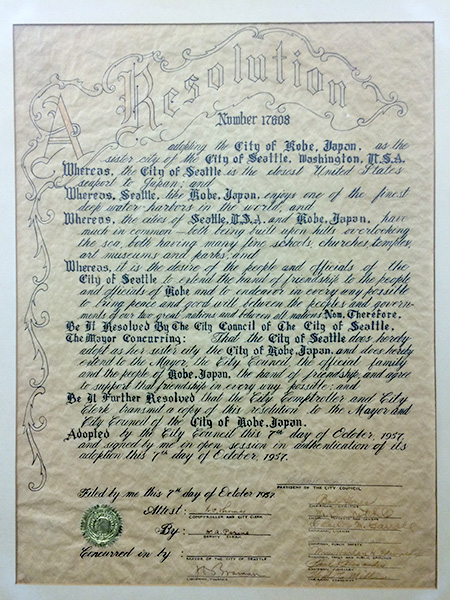 A Resolution
Number 17608
adopting the City of Kobe, Japan, as the
sister city of the City of Seattle, Washington, U.S.A.
Whereas, the City of Seattle is the closest United States
seaport to Japan; and
Whereas, Seattle, like Kobe, Japan, enjoys one of the finest
deep water harbors in the world; and
Whereas, the cities of Seattle, U.S.A. and Kobe, Japan, have
much in common - both being built upon hills overlooking
the sea, both having many fine schools, churches, temples,
art museums and parks; and
Whereas, it is the desire of the people and officials of the
City of Seattle to extend the hand of friendship to the people
and officials of Kobe and to endeavor in every way possible
to bring peace and good will between the peoples and govern-
ments of our two great nations and between all nations. Now, Therefore,
Be It Resolved By The City Council of The City of Seattle,
The Mayor Concurring: That the City of Seattle does hereby
adopt as her sister city the City of Kobe, Japan, and does hereby
extend to the Mayor, the City Council, the official family
and the people of Kobe, Japan, the hand of friendship, and agree
to support that friendship in every way possible; and
Be It Further Resolved that the City Comptroller and City
Clerk transmit a copy of this resolution to the Mayor and
City Council of the City of Kobe, Japan.
Adopted by the City Council this 7th day of October, 1957,
and signed by me in open session in authentication of its
adoption this 7th day of October, 1957.
PRESIDENT OF THE CITY COUNCIL
Filed by me this 7th day of October 1957
Attest:
COMPTROLLER AND CITY CLERK
By:
DEPUTY CLERK
Concurred in by:
MAYOR OF THE CITY OF SEATTLE